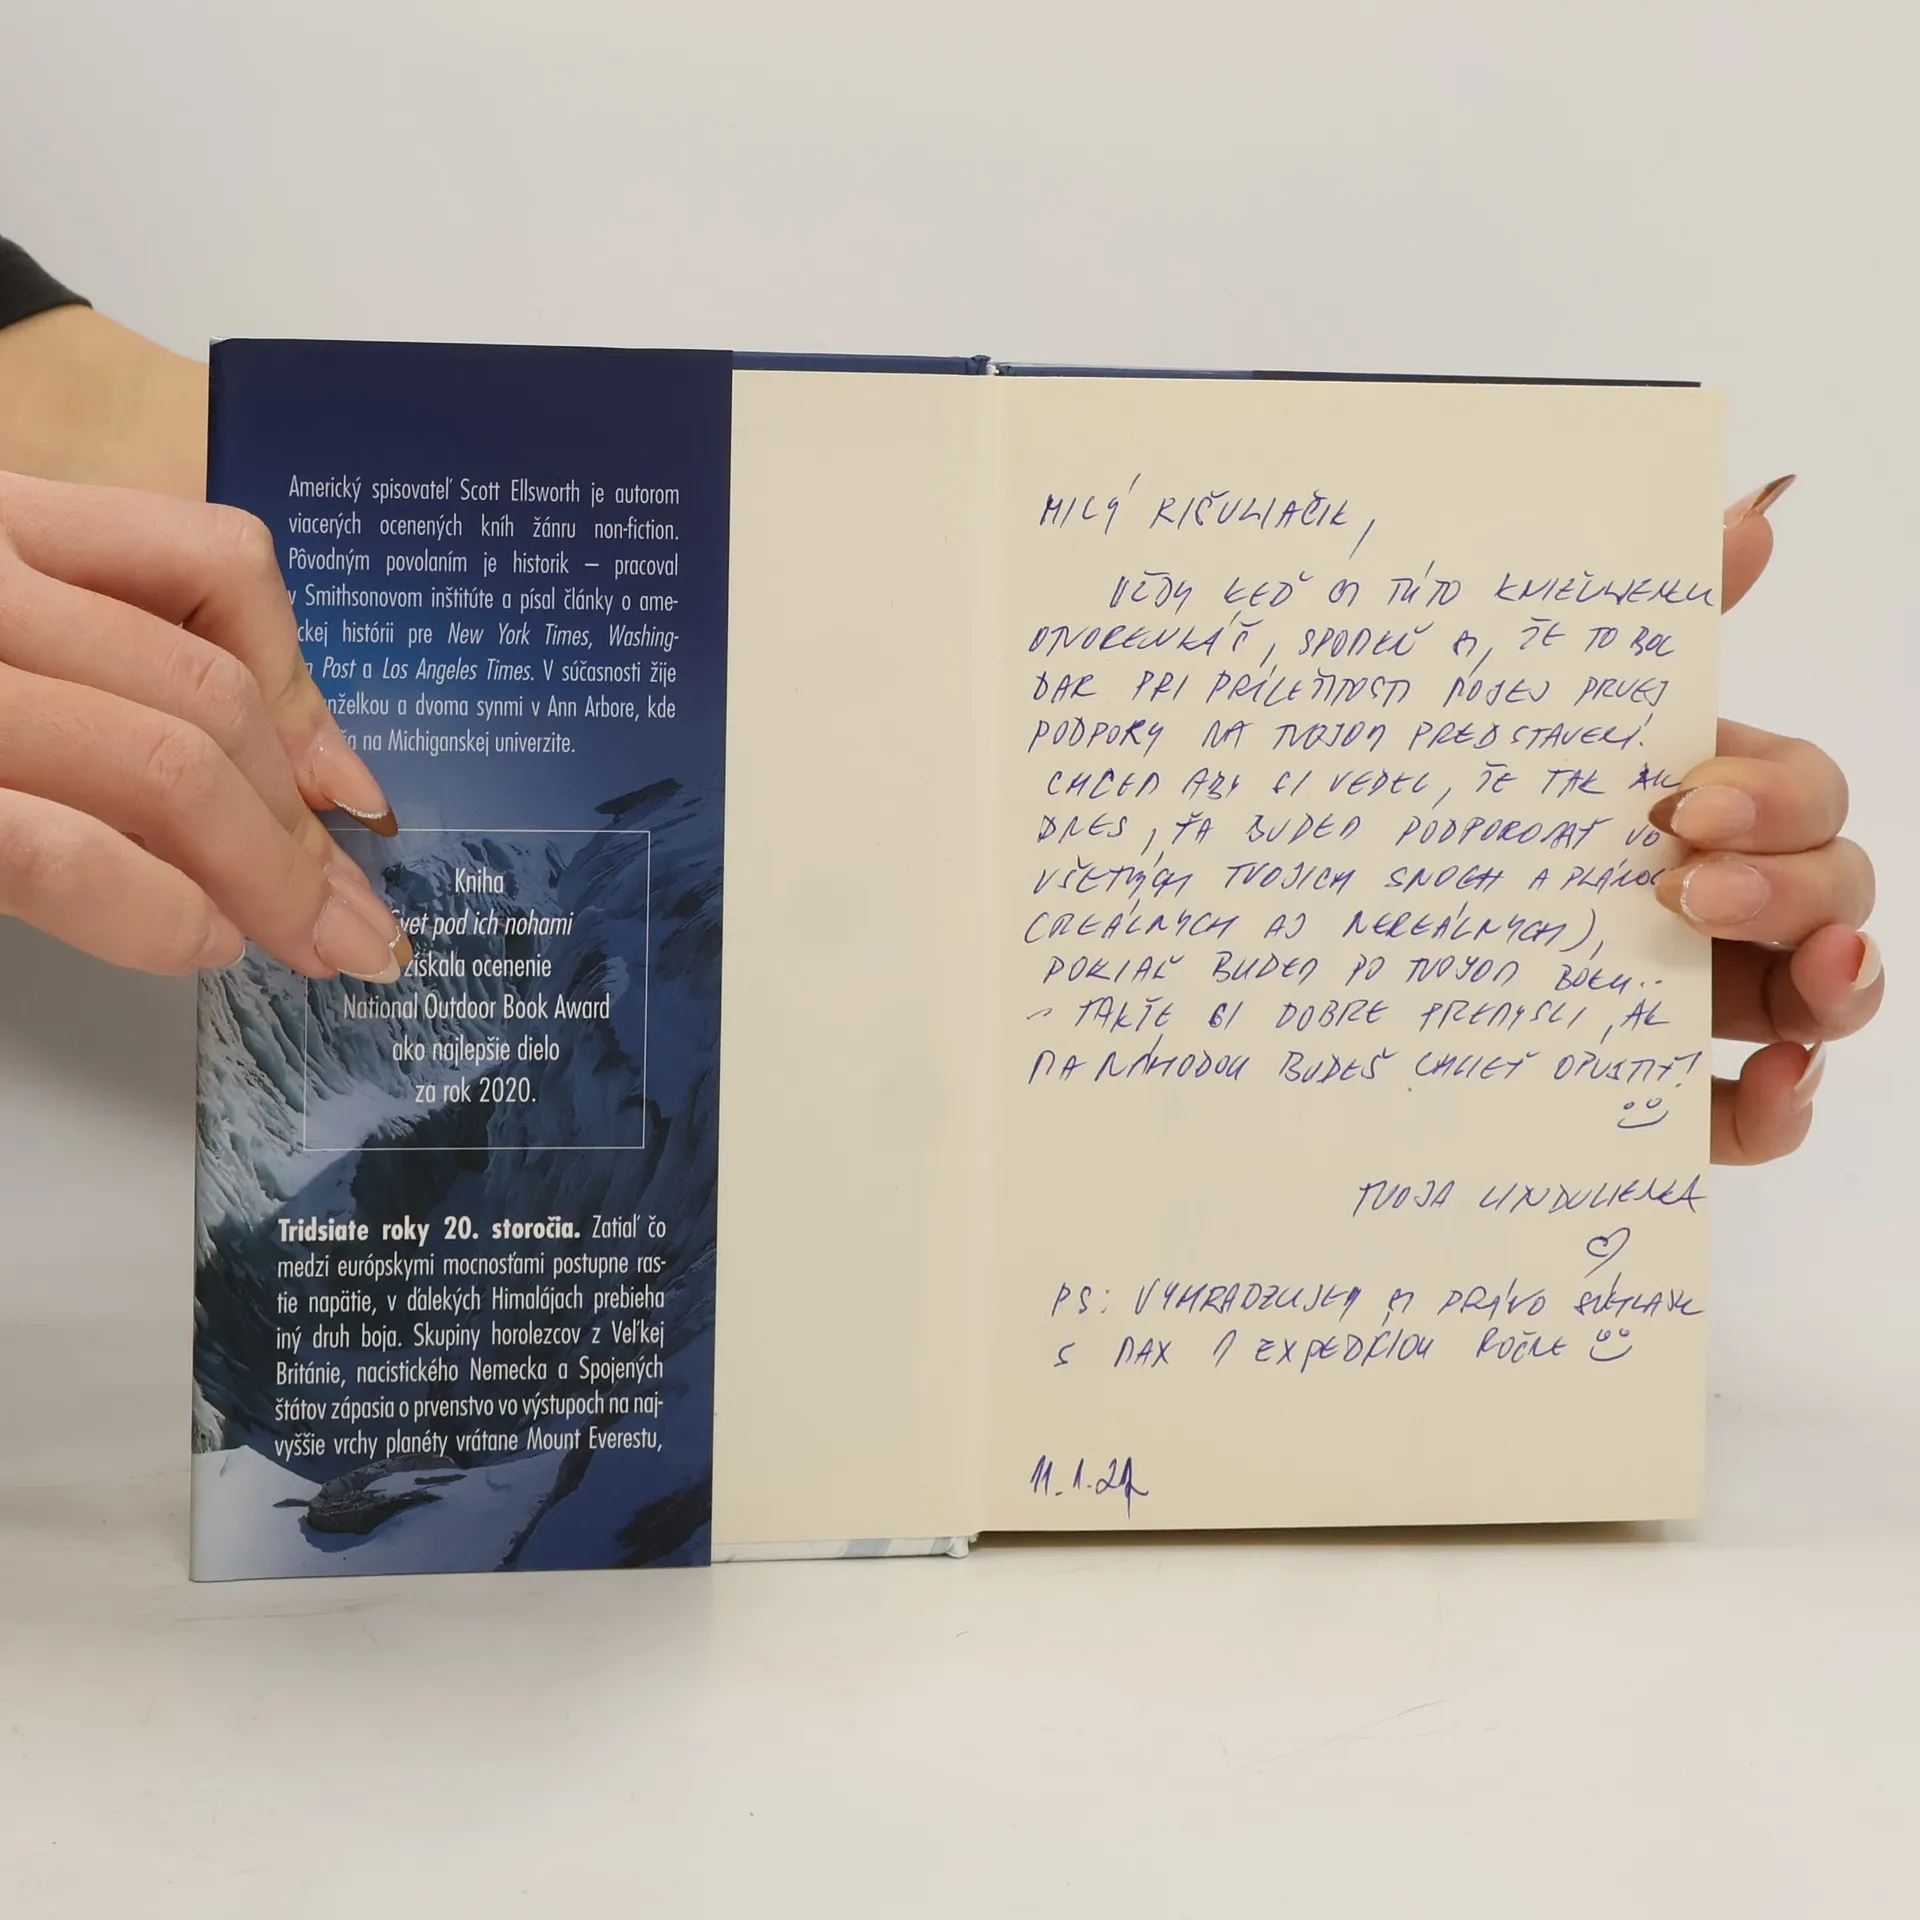 Americký spisovateľ Scott Ellsworth je autorom
viacerých ocenených kníh žánru non-fiction.
Pôvodným povolaním je historik – pracoval
v Smithsonovom inštitúte a písal články o ame-
ckej histórii pre New York Times, Washing-
Post a Los Angeles Times. V súčasnosti žije
nželkou a dvoma synmi v Ann Arbore, kde
na Michiganskej univerzite.
Kniha
Svet pod ich nohami
získala ocenenie
National Outdoor Book Award
ako najlepšie dielo
za rok 2020.
Tridsiate roky 20. storočia. Zatiaľ čo
medzi európskymi mocnosťami postupne ras-
tie napätie, v ďalekých Himalájach prebieha
iný druh boja. Skupiny horolezcov z Veľkej
Británie, nacistického Nemecka a Spojených
štátov zápasia o prvenstvo vo výstupoch na naj-
vyššie vrchy planéty vrátane Mount Everestu,
MILÝ RIŠULIAČIK,
VŽDY KEĎ SI TÚTO
OTVORENKÁŠ, SPOMEŇ SI, ŽE TO BOL
DAR PRI PRÍLEŽITOSTI MOJEJ PRVEJ
PODPORY NA TVOJOM PREDSTAVENÍ.
CHCEM ABY SI VEDEL, ŽE TAK AK
DNES, ŤA BUDEM PODPOROVAŤ VO
VŠETKÝCH TVOJICH SNOCH A PLÁNOC
(REÁLNYCH AJ NEREÁLNYCH),
POKIAĽ BUDEM PO TVOJOM BOKU..
- TAKŽE SI DOBRE PREMYSLI, AK
MA NÁHODOU BUDEŠ CHCIEŤ OPUSTIŤ!
TVOJA LINDULIENKA
PS: VYHRADZUJEM SI PRÁVO SÚHLASU
S MAX 1 EXPEDÍCIOU ROČNE
11.1.22